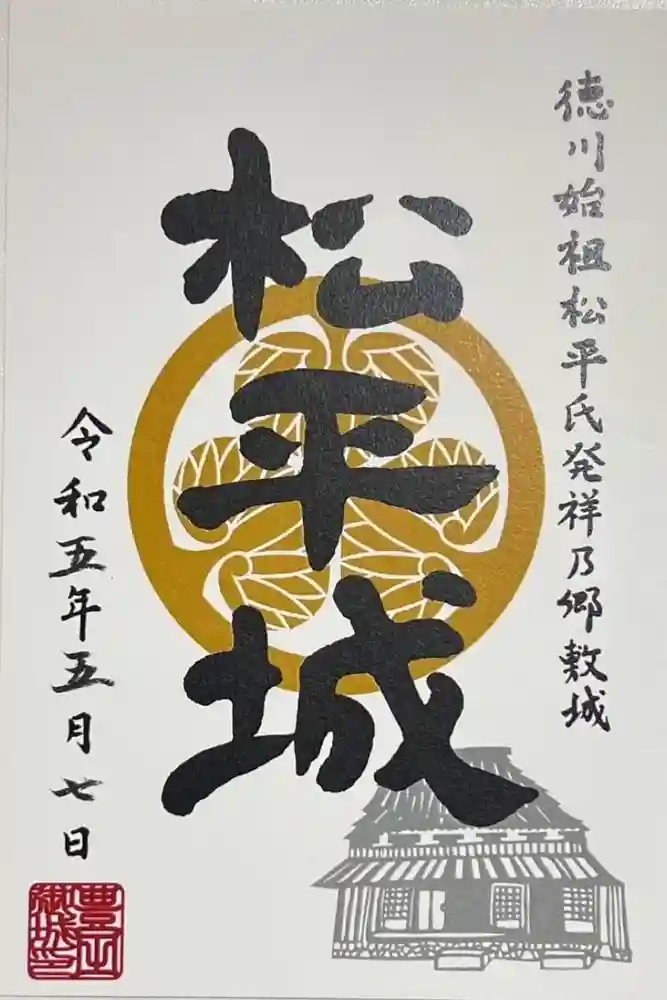 徳川始祖松平氏発祥乃郷敷城
松平城
令和五年五月七日